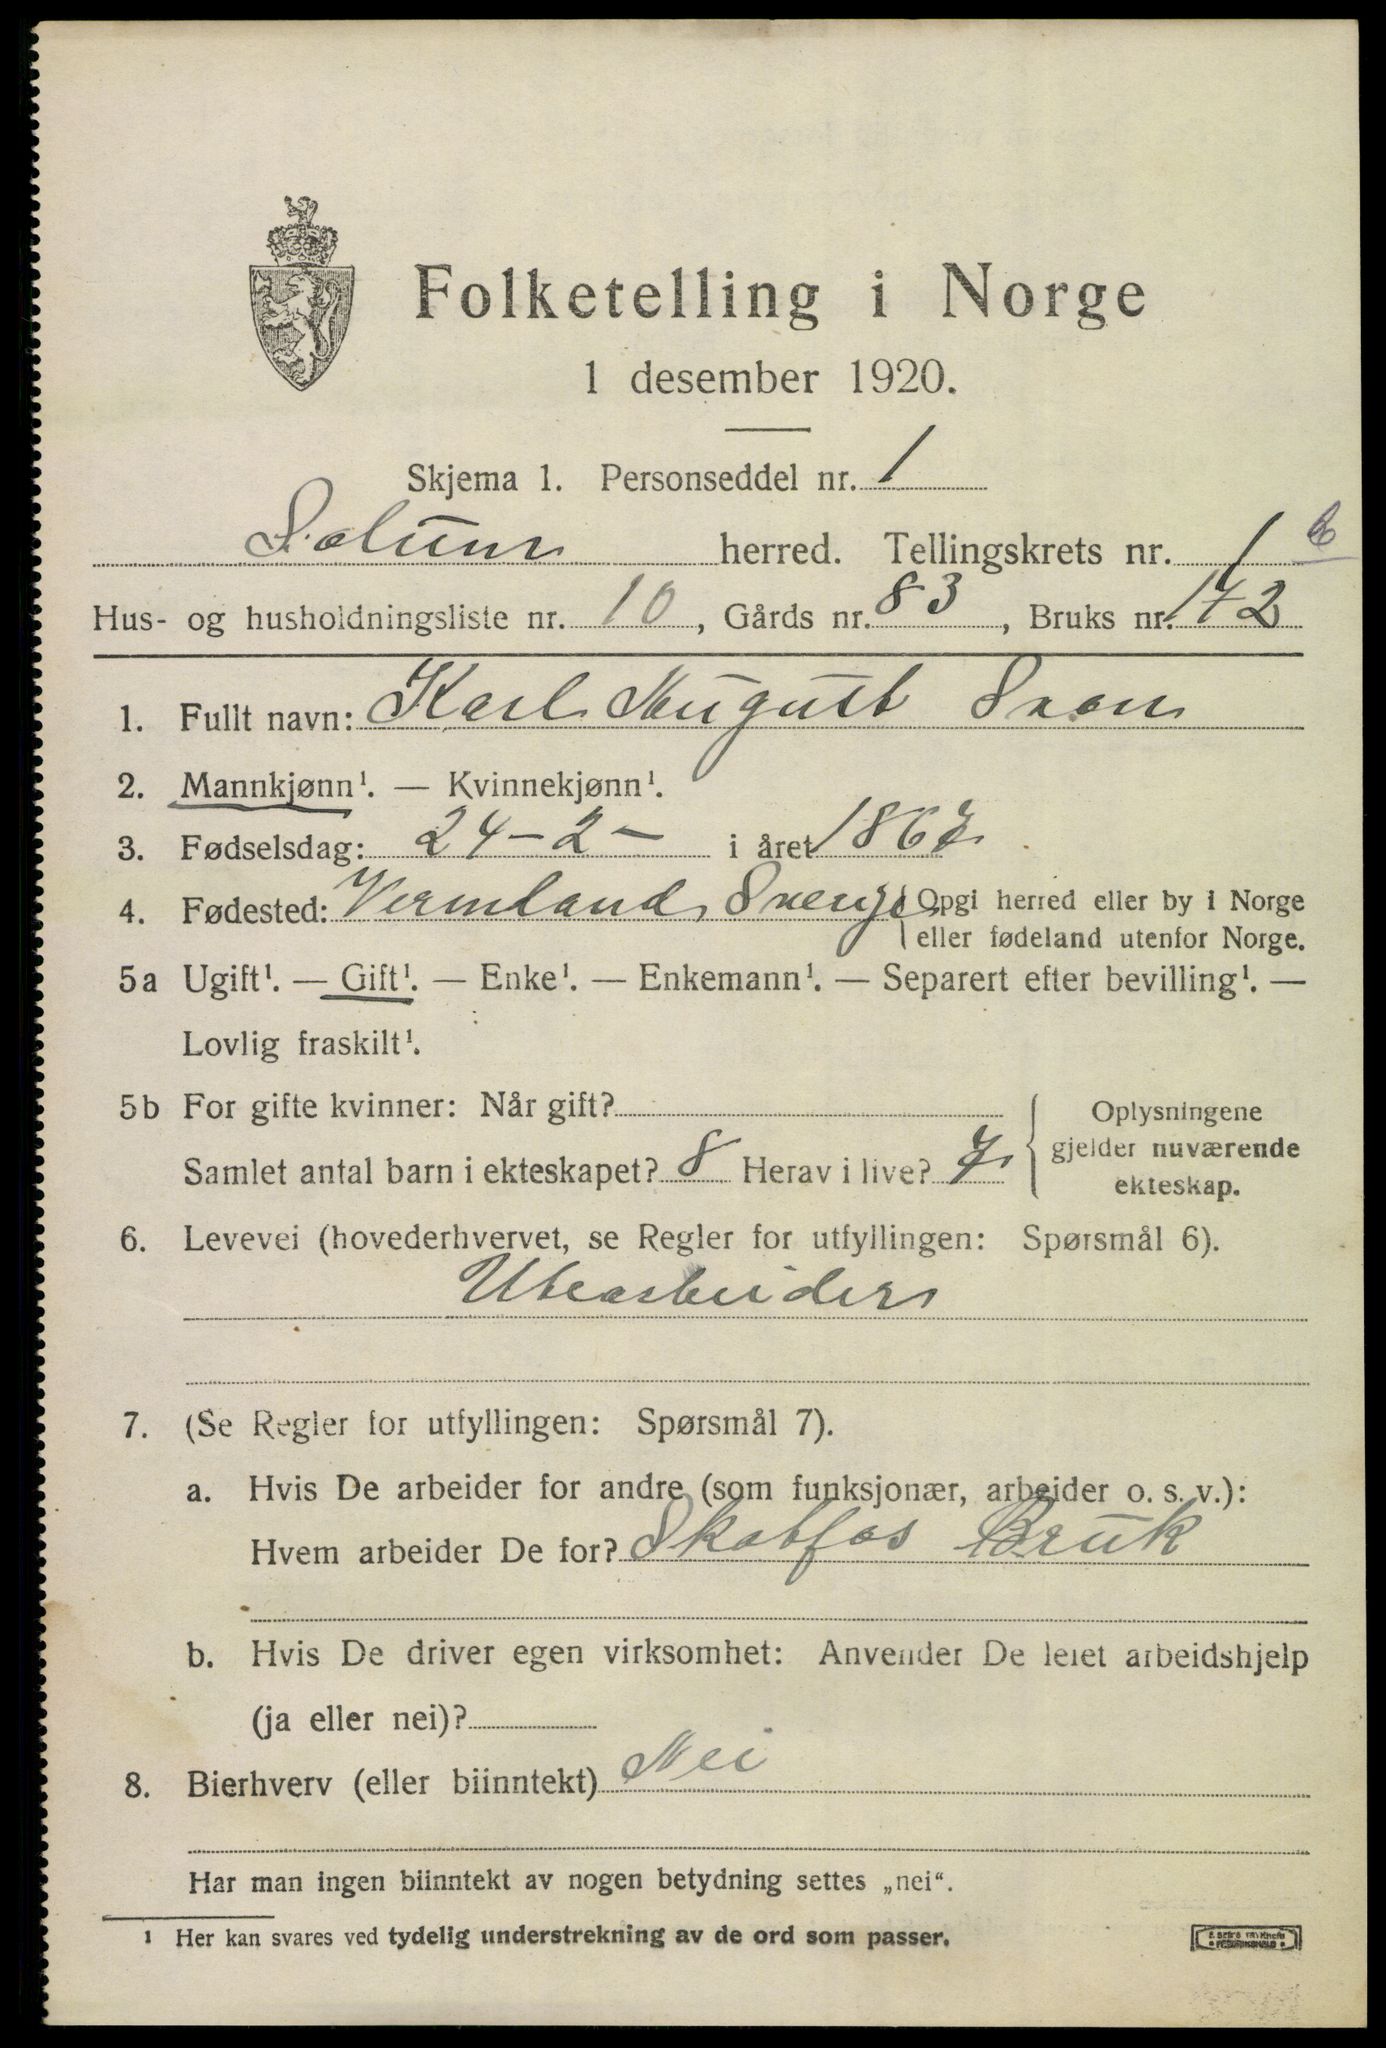 Folketelling i Norge
1 desember 1920.
Skjema 1. Personseddel nr. 1
Solum herred. Tellingskrets nr. 1 b
Hus- og husholdningsliste nr. 10, Gårds nr. 83, Bruks nr. 142
1. Fullt navn: Karl August Svan
2. Mannkjønn¹. — Kvinnekjønn¹.
3. Fødselsdag: 24-2- i året 1867
4. Fødested: Vermland Sverige { Opgi herred eller by i Norge
eller fødeland utenfor Norge.
5a Ugift¹. — Gift¹. — Enke¹. — Enkemann¹. — Separert efter bevilling¹. —
Lovlig fraskilt¹.
5b For gifte kvinner: Når gift?
Samlet antal barn i ekteskapet? 8 Herav i live? 7
{ Oplysningene
gjelder nuværende
ekteskap.
6. Levevei (hovederhvervet, se Regler for utfyllingen: Spørsmål 6).
Utearbeider
7. (Se Regler for utfyllingen: Spørsmål 7).
a. Hvis De arbeider for andre (som funksjonær, arbeider o. s. v.):
Hvem arbeider De for? Skotfos Bruk
b. Hvis De driver egen virksomhet: Anvender De leiet arbeidshjelp
(ja eller nei)?
8. Bierhverv (eller biinntekt) Nei
Har man ingen biinntekt av nogen betydning settes „nei“.
1 Her kan svares ved tydelig understrekning av de ord som passer.